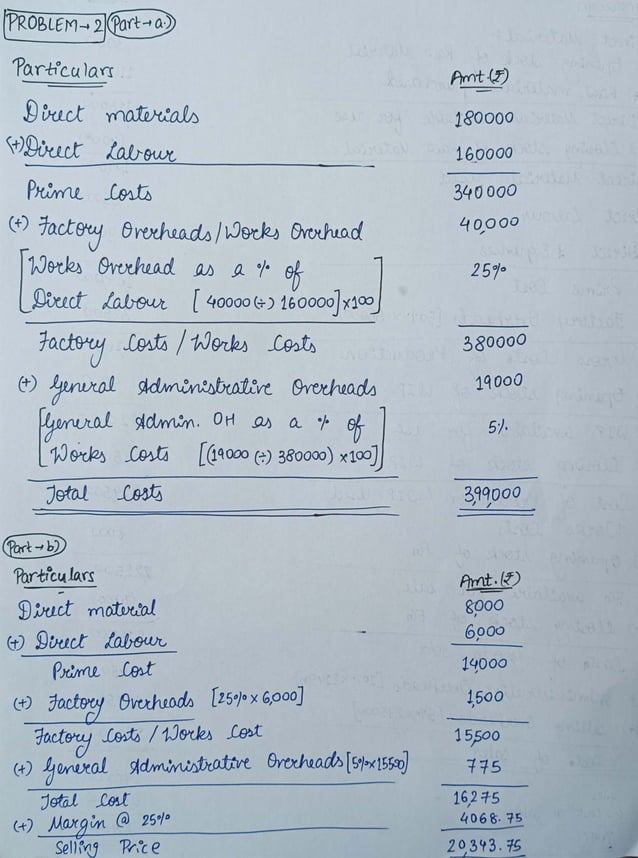 PROBLEM→2 (Part→a.)
Particulars Amt.(₹)
Direct materials 180000
(+) Direct Labour 160000
Prime Costs 340000
(+) Factory Overheads/Works Overhead 40,000
[Works Overhead as a % of 25%
Direct Labour [40000(÷) 160000]×100]
Factory Costs / Works Costs 380000
(+) General Administrative Overheads 19000
[General Admin. OH as a % of 5%
Works Costs [(19000 (÷) 380000) ×100]]
Total Costs 3,99,000
(Part→b)
Particulars Amt.(₹)
Direct material 8,000
(+) Direct Labour 6,000
Prime Cost 14,000
(+) Factory Overheads [25%×6,000] 1,500
Factory Costs / Works Cost 15,500
(+) General Administrative Overheads [5%×15500] 775
Total Cost 16,275
(+) Margin @ 25% 4068.75
Selling Price 20,343.75